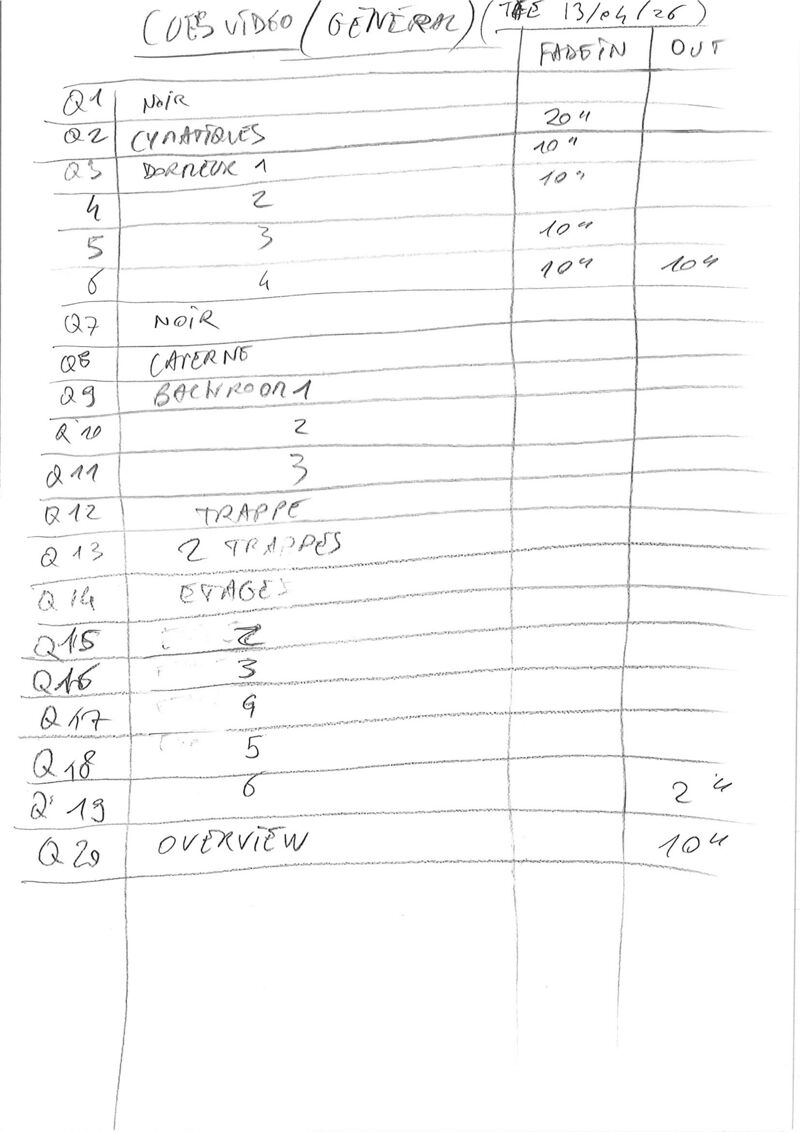 CUES VIDEO (GENERAL) (TAE 13/04/26)
FADE IN OUT
Q1 NOIR
Q2 CYMATIQUES 20"
Q3 DORMEUR 1 10"
4 2 10"
5 3 10"
6 4 10" 10"
Q7 NOIR
Q8 CAVERNE
Q9 BACKROOM 1
Q10 2
Q11 3
Q12 TRAPPE
Q13 2 TRAPPES
Q14 ETAGES
Q15 2
Q16 3
Q17 4
Q18 5
Q19 6 2"
Q20 OVERVIEW 10"